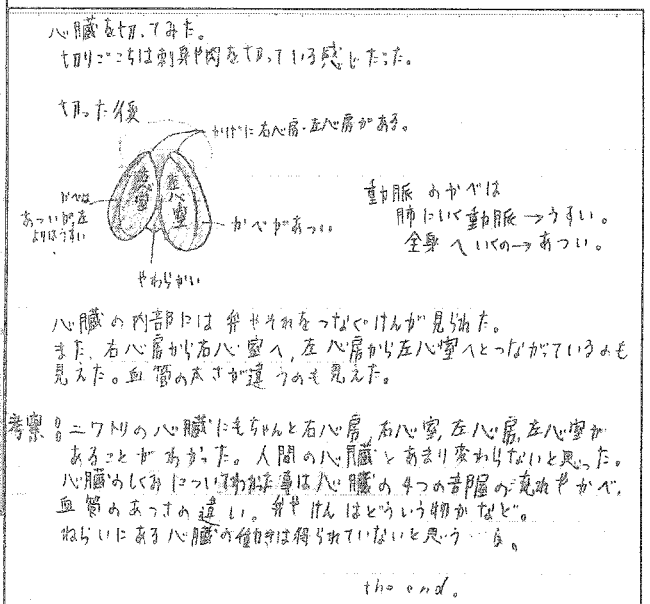 心臓を切ってみた。
切りごこちは刺身や肉を切っている感じだった。
切った後
かげに右心房・左心房がある。
右心室
左心室
かべは
あついが左
よりはうすい
かべがあつい
やわらかい
動脈のかべは
肺にいく動脈→うすい。
全身へいくの→あつい。
心臓の内部には弁やそれをつなぐけんが見られた。
また、右心房から右心室へ、左心房から左心室へとつながっているのも
見えた。血管の太さが違うのも見えた。
考察 ニワトリの心臓にもちゃんと右心房,右心室,左心房,左心室が
あることがわかった。人間の心臓とあまり変わらないと思った。
心臓のしくみについてわかった事は心臓の4つの部屋の流れやかべ,
血管のあつさの違い。弁やけんはどういう物かなど。
ねらいにある心臓の働きは得られていないと思う…
the end.